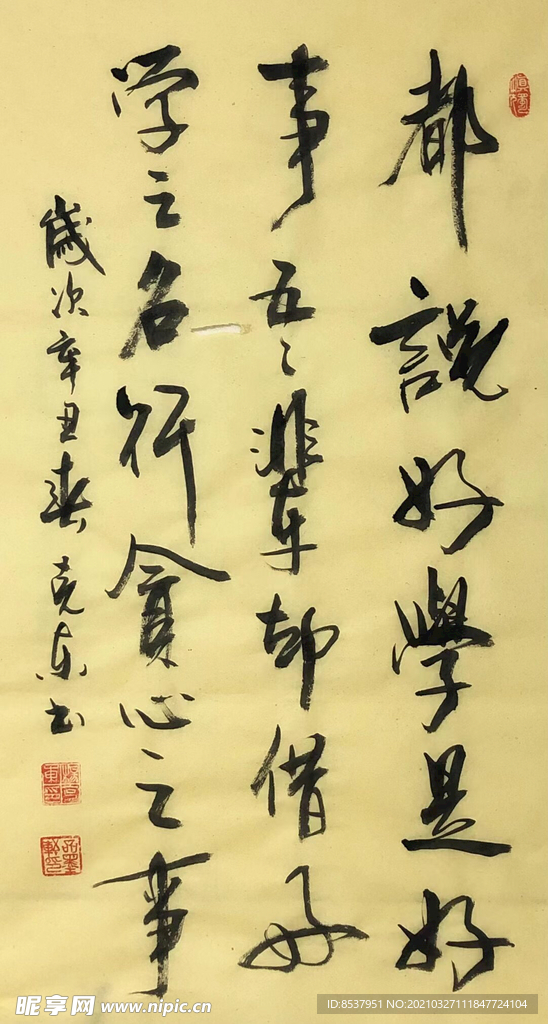 都說好學是好
事吾輩却借好
学之名行貪心之事
歲次辛丑春克东书
昵享网 www.nipic.cn
ID:8537951 NO:20210327111847724104